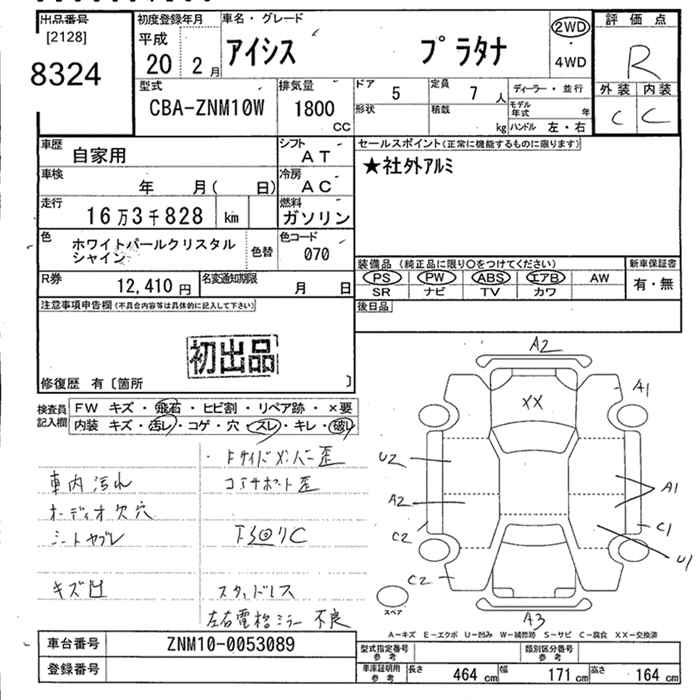 出品番号
[2128]
8324
初度登録年月
平成
20年 2月
車名・グレード
アイシス プラタナ
2WD
・
4WD
評価点
R
外装 内装
C C
型式
CBA-ZNM10W
排気量
1800
CC
ドア
5
形状
定員
7人
積載
kg
ディーラー・並行
モデル年式 年
ハンドル 左・右
車歴
自家用
シフト
AT
車検
年 月( 日)
冷房
AC
走行
16万3千828 km
燃料
ガソリン
色
ホワイトパールクリスタル
シャイン
色替
色コード
070
R券
12,410 円
名変通知期限
月 日
セールスポイント(正常に機能するものに限ります)
★社外アルミ
装備品 (純正品に限り○をつけてください)
PS PW ABS エアB AW
SR ナビ TV カワ
新車保証書
有・無
後日品
注意事項申告欄(不具合内容等は具体的に記入して下さい)
初出品
修復歴 有〔箇所 〕
検査員
記入欄
FW キズ・飛石・ヒビ割・リペア跡・×要
内装 キズ・汚レ・コゲ・穴・スレ・キレ・破レ
・Fサイドメンバー歪
車内汚れ
コアサポート歪
オーディオ欠穴
シートヤブレ
キズ凹
スタッドレス
左右電格ミラー不良
A2
A1
XX
U2
A2
A1
C2
C1
U1
C2
A3
スペア
A-キズ E-エクボ U-凹み W-補修跡 S-サビ C-腐食 XX-交換済
車台番号
ZNM10-0053089
登録番号
型式指定番号
参考
類別区分番号
参考
車庫証明用
参考
長さ 464 cm 幅 171 cm 高さ 164 cm